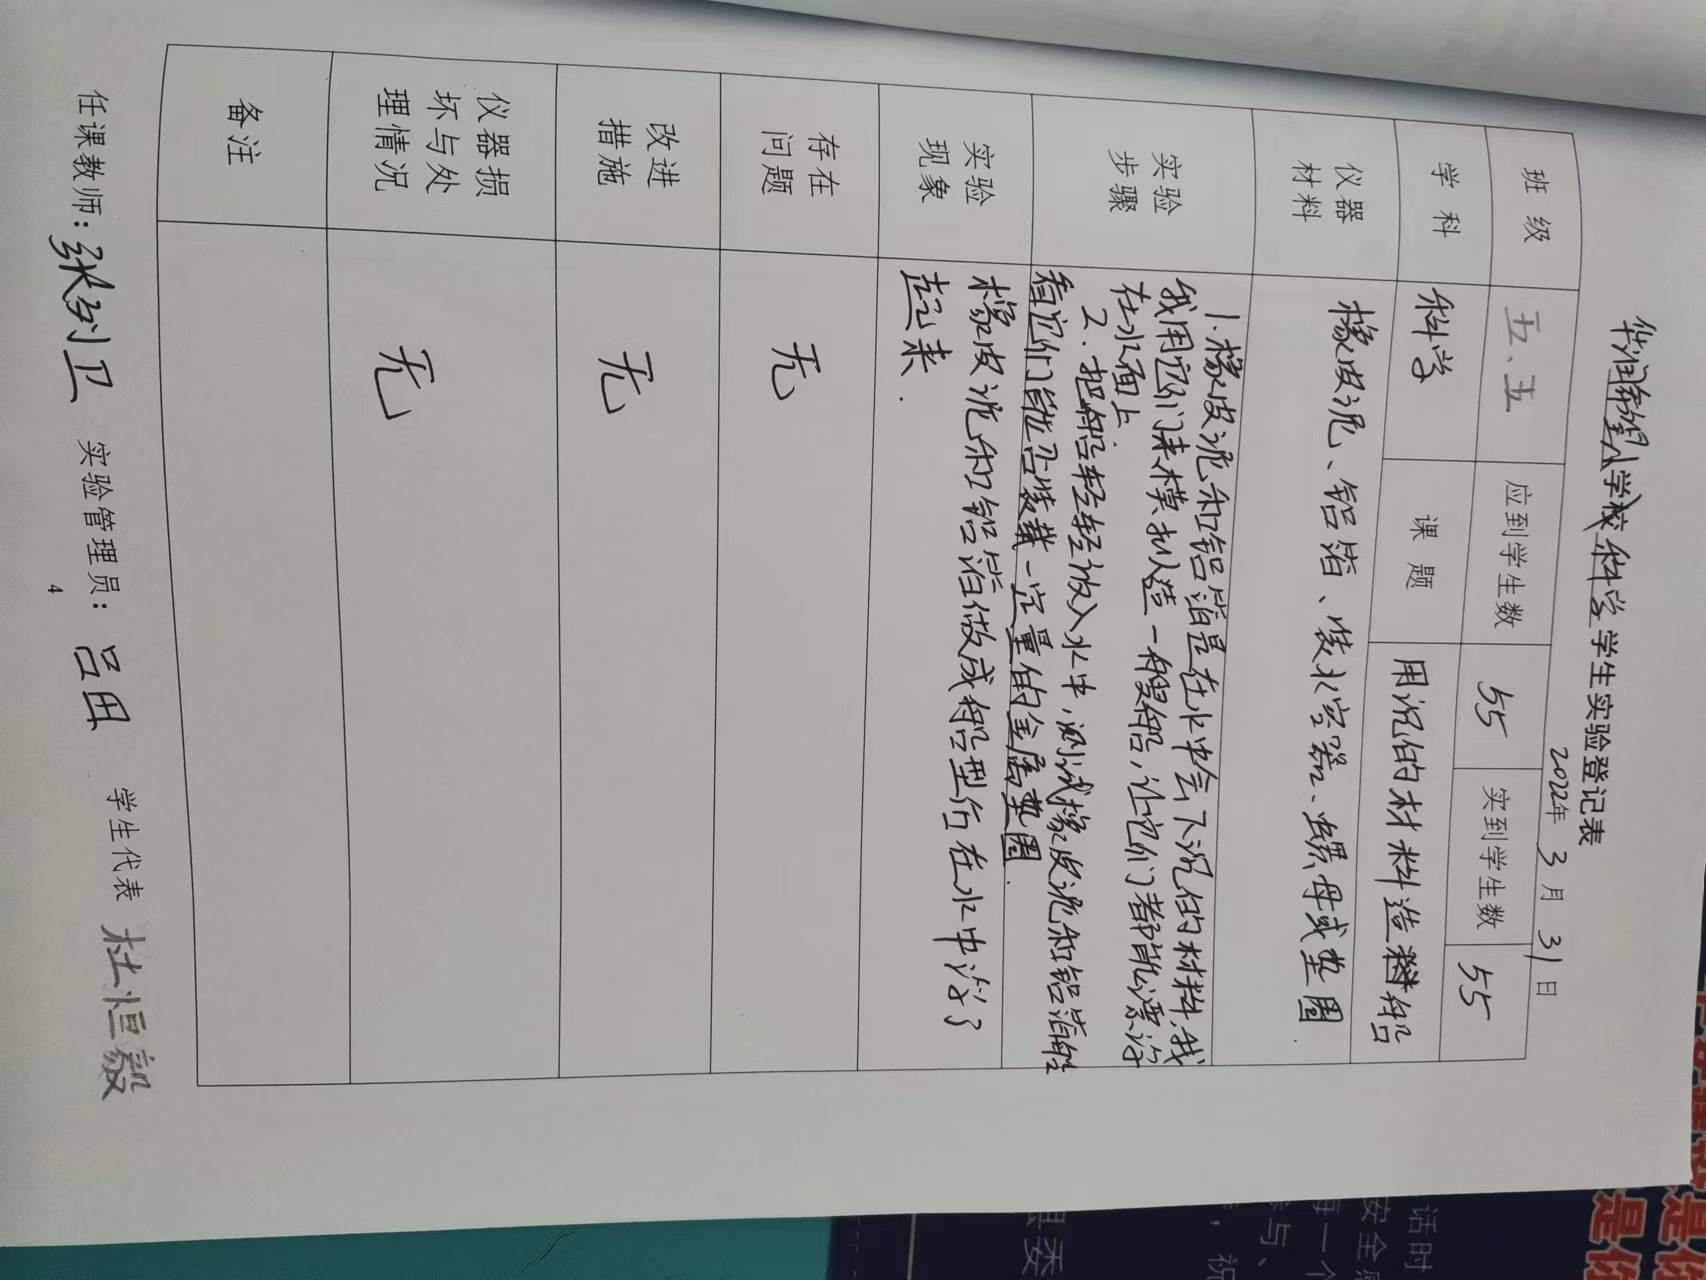 华润希望小学校科学学生实验登记表
2022年3月31日
班级 五、五 应到学生数 55 实到学生数 55
学科 科学 课题 用沉的材料造船
仪器材料 橡皮泥、铝箔、装水容器、螺母或垫圈.
实验步骤
1.橡皮泥和铝箔是在水中会下沉的材料,我
我用它们来模拟造一艘船,让它们都能漂浮
在水面上.
2.把船轻轻放入水中,测试橡皮泥和铝箔船
看它们能否装载一定量的金属垫圈.
实验现象
橡皮泥和铝箔做成船型后在水中浮了
起来.
存在问题 无
改进措施 无
仪器损坏与处理情况 无
备注
任课教师: 张列卫 实验管理员: 吕田 学生代表 杜恒毅
4
话时
安全
有一个
与、
,祝
县委
是你
是你